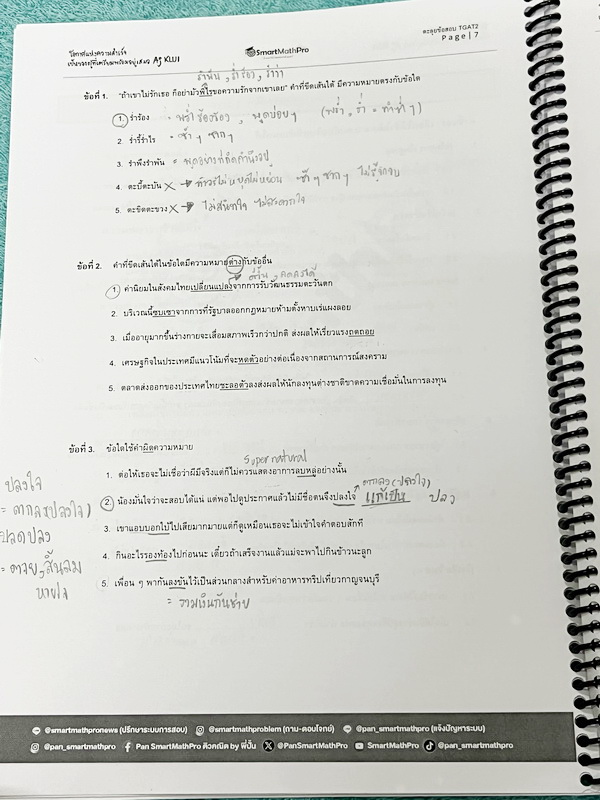 โอกาสแห่งความสำเร็จ
เป็นของผู้ที่เตรียมพร้อมอยู่เสมอ AJ KLUI
SmartMathPro
ตะลุยข้อสอบ TGAT2
Page | 7
รำพัน, ร่ำร้อง,
ข้อที่ 1. "ถ้าเขาไม่รักเธอ ก็อย่ามัวพิไรขอความรักจากเขาเลย" คำที่ขีดเส้นใต้ มีความหมายตรงกับข้อใด
1. ร่ำร้อง = พร่ำร้องร้อง, พูดบ่อยๆ (พร่ำ, ร่ำ = ทำซ้ำๆ)
2. ร่ำรี้ร่ำไร = ซ้ำๆ ซากๆ
3. รำพึงรำพัน =
4. ตะบี้ตะบัน X → ซ้ำๆ ซากๆ
5. ตะขิดตะขวง X → ไม่สนิทใจ ไม่สะดวกใจ
ข้อที่ 2. คำที่ขีดเส้นใต้ในข้อใดมีความหมายต่างกับข้ออื่น
1. ค่านิยมในสังคมไทยเปลี่ยนแปลงจากการรับวัฒนธรรมตะวันตก
2. บริเวณนี้ซบเซาจากการที่รัฐบาลออกกฎหมายห้ามตั้งหาบเร่แผงลอย
3. เมื่ออายุมากขึ้นร่างกายจะเสื่อมสภาพเร็วกว่าปกติ ส่งผลให้เรี่ยวแรงถดถอย
4. เศรษฐกิจในประเทศมีแนวโน้มที่จะหดตัวอย่างต่อเนื่องจากสถานการณ์สงคราม
5. ตลาดส่งออกของประเทศไทยชะลอตัวลงส่งผลให้นักลงทุนต่างชาติขาดความเชื่อมั่นในการลงทุน
ข้อที่ 3. ข้อใดใช้คำผิดความหมาย
Super natural
1. ต่อให้เธอจะไม่เชื่อว่าผีมีจริงแต่ก็ไม่ควรแสดงอาการลบหลู่อย่างนั้น
ตกลง (ปลงใจ)
2. น้องมั่นใจว่าจะสอบได้แน่ แต่พอไปดูประกาศแล้วไม่มีชื่อตนจึงปลงใจ แก้เป็น ปลง
3. เขาแอบบอกใบ้ไปเสียมากมายแต่ก็ดูเหมือนเธอจะไม่เข้าใจคำตอบสักที
4. กินอะไรรองท้องไปก่อนนะ เดี๋ยวถ้าเสร็จงานแล้วแม่จะพาไปกินข้าวนะลูก
5. เพื่อน ๆ พากันลงขันไว้เป็นส่วนกลางสำหรับค่าอาหารทริปเที่ยวกาญจนบุรี
= รวมเงินกันช่วย
ปลงใจ
= ตกลง(ปลงใจ)
ปลดปลง
= ตาย, สิ้นลม
หายใจ
@smartmathpronews (ปรึกษาระบบการสอบ) @smartmathproblem (ถาม-ตอบโจทย์) @pan_smartmathpro (แจ้งปัญหาระบบ)
@pan_smartmathpro Pan SmartMathPro ติวคณิต by พี่ปั้น @PanSmartMathPro SmartMathPro @pan_smartmathpro